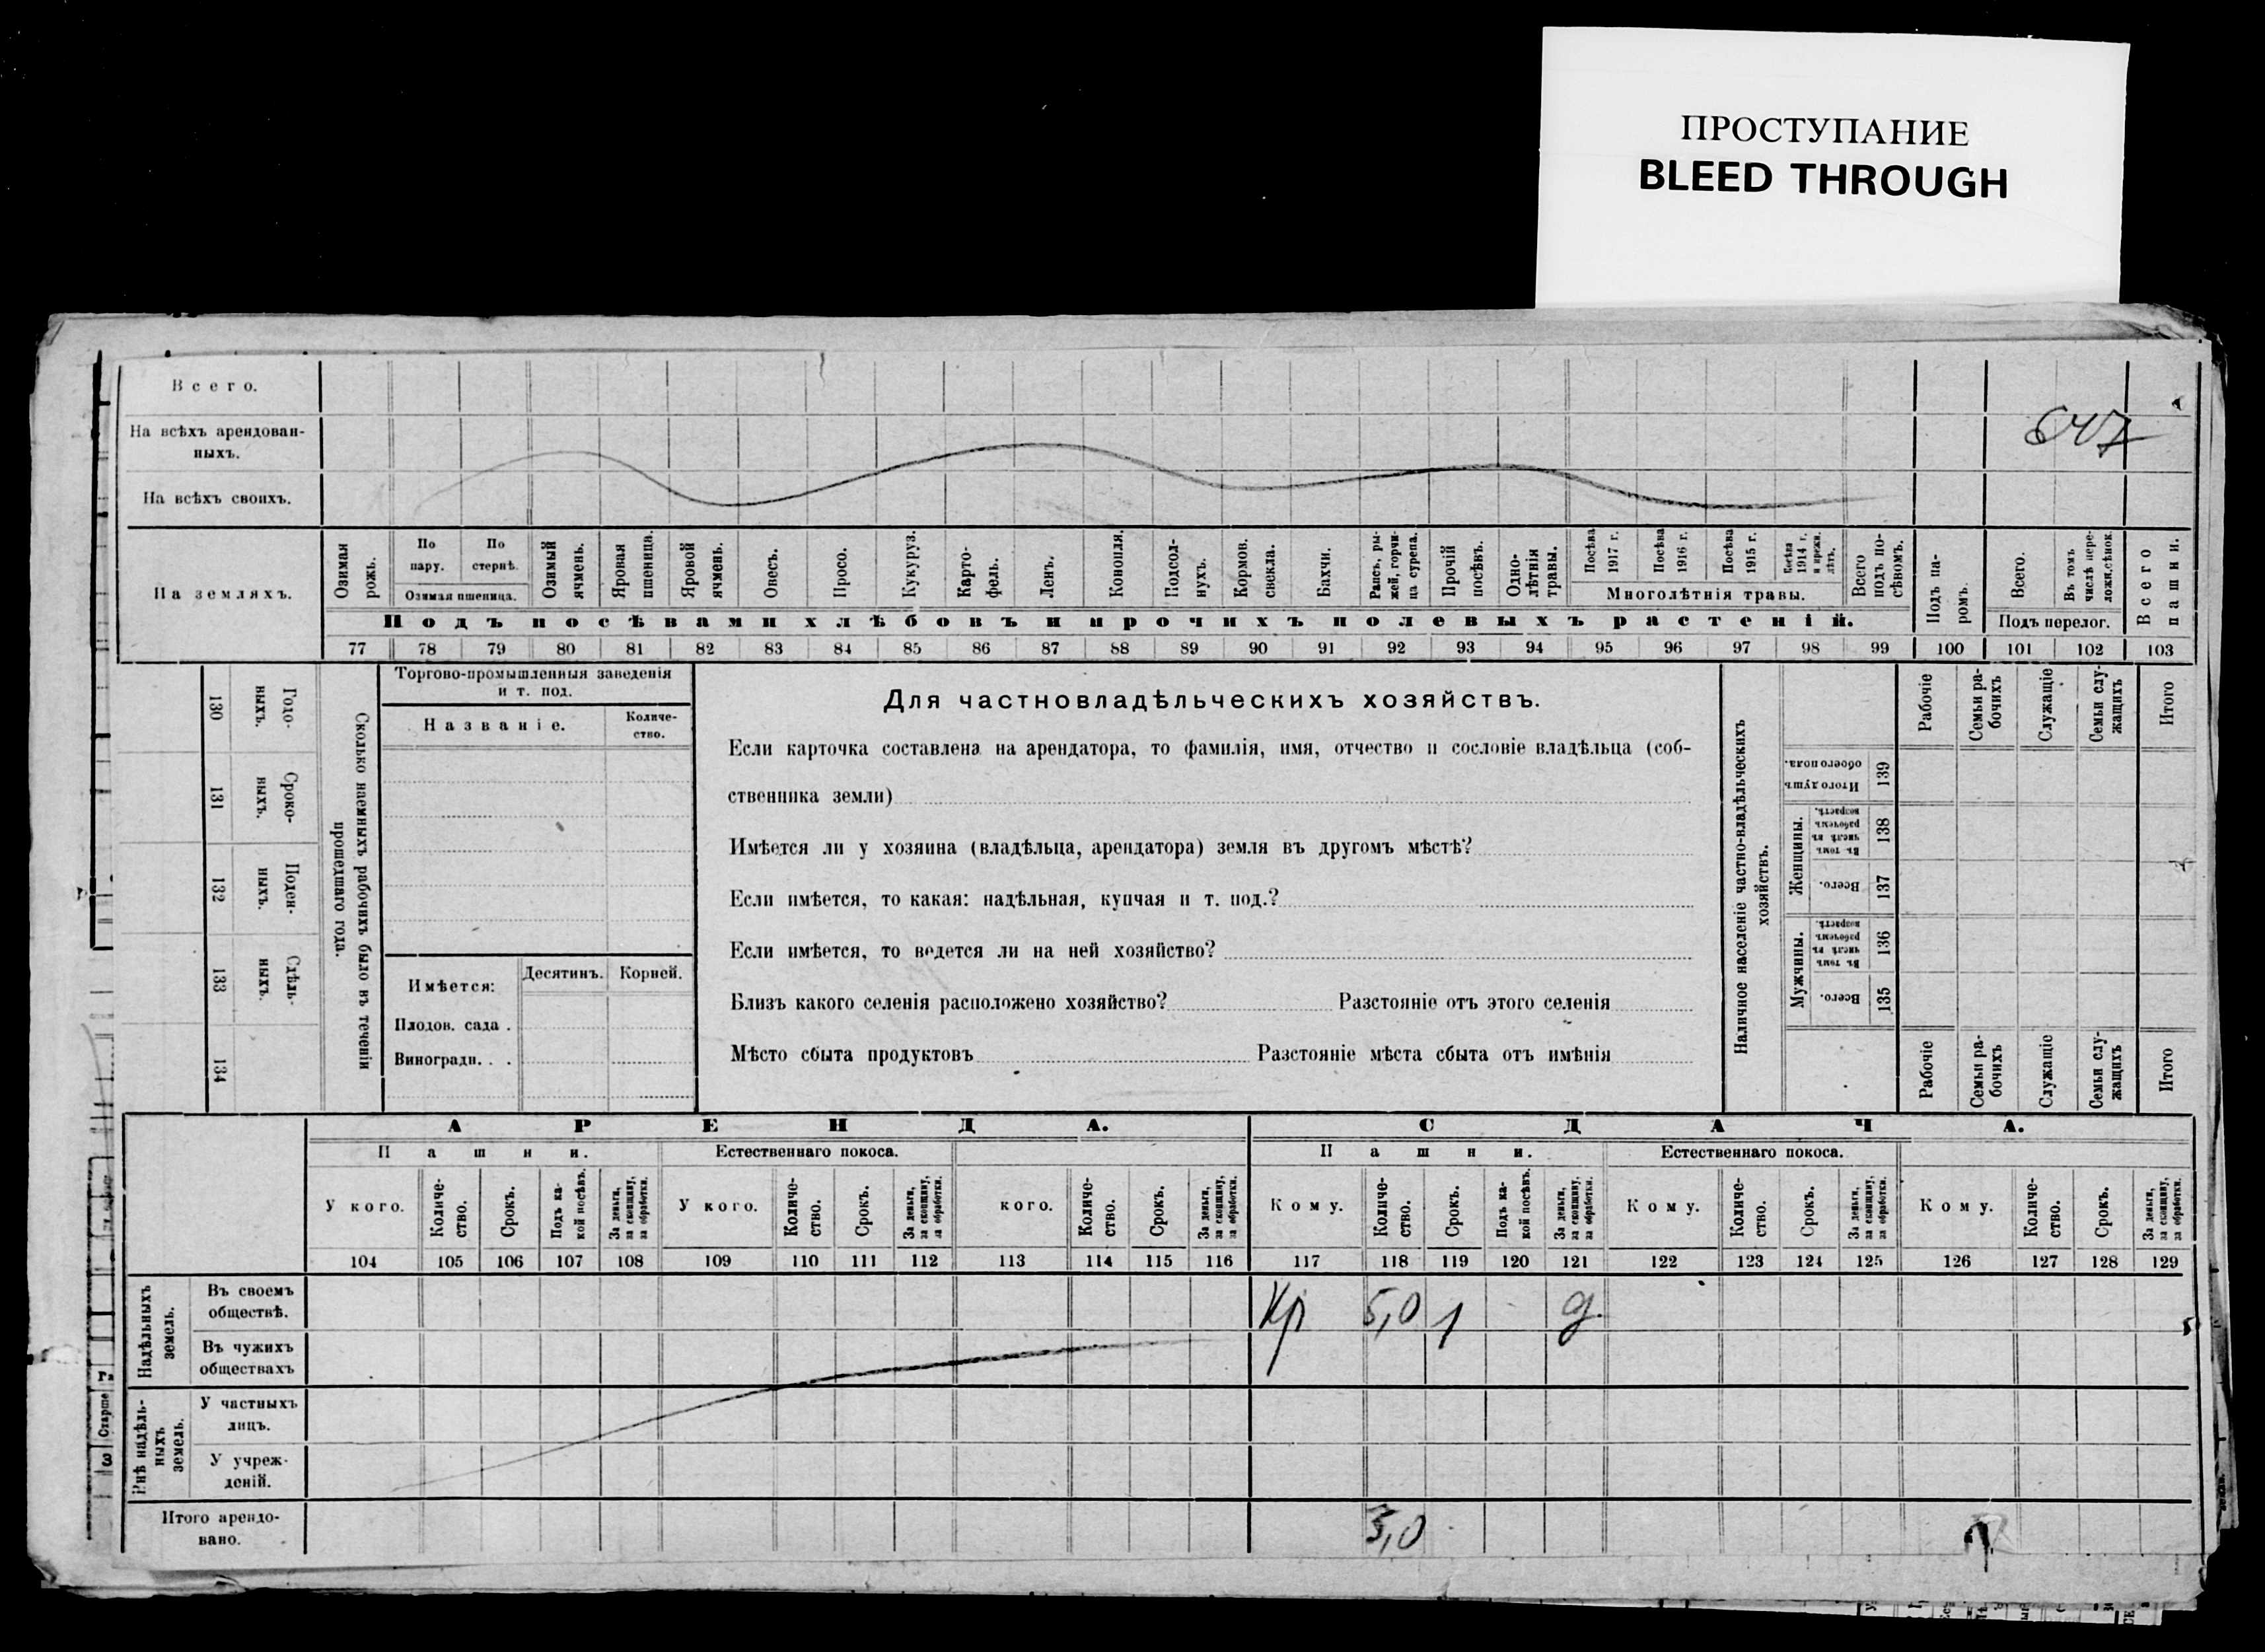 ПРОСТУПАНИЕ
BLEED THROUGH
Всего.
На всѣхъ арендован-
ныхъ.
647
На всѣхъ своихъ.
На земляхъ.
Озимая
рожь.
По
пару.
По
стернѣ.
Озимая пшеница.
Озимый
ячмень.
Яровая
пшеница.
Яровой
ячмень.
Овесъ.
Просо.
Кукуруз.
Карто-
фель.
Ленъ.
Конопля.
Подсол-
нухъ.
Кормов.
свекла.
Бахчи.
Рапсъ, ры-
жей, горчи-
ца сурепа.
Прочій
посѣвъ.
Одно-
лѣтнія
травы.
Посѣва
1917 г.
Посѣва
1916 г.
Посѣва
1915 г.
Посѣва
1914 г.
и прежн.
лѣтъ.
Многолѣтнія травы.
Всего
подъ по-
сѣвомъ.
Подъ па-
ромъ.
Всего.
Въ томъ
числѣ пере-
ложн.сѣнок.
Подъ перелог.
Всего
пашни.
Подъ посѣвами хлѣбовъ и прочихъ полевыхъ растеній.
77 78 79 80 81 82 83 84 85 86 87 88 89 90 91 92 93 94 95 96 97 98 99 100 101 102 103
130
Годо-
ныхъ.
131
Сроко-
ныхъ.
132
Поден-
ныхъ.
133
Сдѣль-
ныхъ.
134
Сколько наемныхъ рабочихъ было въ теченіи
прошедшаго года.
Торгово-промышленныя заведенія
и т. под.
Названіе.
Количе-
ство.
Имѣется:
Десятинъ.
Корней.
Плодов. сада .
Виноградн. . .
Для частновладѣльческихъ хозяйствъ.
Если карточка составлена на арендатора, то фамилія, имя, отчество и сословіе владѣльца (соб-
ственника земли)
Имѣется ли у хозяина (владѣльца, арендатора) земля въ другомъ мѣстѣ?
Если имѣется, то какая: надѣльная, купчая и т. под.?
Если имѣется, то ведется ли на ней хозяйство?
Близъ какого селенія расположено хозяйство? Разстояніе отъ этого селенія
Мѣсто сбыта продуктовъ Разстояніе мѣста сбыта отъ имѣнія
Наличное населеніе частно-владѣльческихъ
хозяйствъ.
Итого душъ
обоего пола.
139
Женщины.
Въ томъ
числѣ въ
рабочемъ
возрастѣ.
138
Всего.
137
Мужчины.
Въ томъ
числѣ въ
рабочемъ
возрастѣ.
136
Всего.
135
Рабочіе
Семьи ра-
бочихъ
Служащіе
Семьи слу-
жащихъ
Итого
Рабочіе
Семьи ра-
бочихъ
Служащіе
Семьи слу-
жащихъ
Итого
АРЕНДА.
СДАЧА.
Пашни.
Естественнаго покоса.
Пашни.
Естественнаго покоса.
У кого.
Количе-
ство.
Срокъ.
Подъ ка-
кой посѣвъ.
За деньги,
за скопщину,
за обработки.
У кого.
Количе-
ство.
Срокъ.
За деньги,
за скопщину,
за обработки.
кого.
Количе-
ство.
Срокъ.
За деньги,
за скопщину,
за обработки.
Кому.
Количе-
ство.
Срокъ.
Подъ ка-
кой посѣвъ.
За деньги,
за скопщину,
за обработки.
Кому.
Количе-
ство.
Срокъ.
За деньги,
за скопщину,
за обработки.
Кому.
Количе-
ство.
Срокъ.
За деньги,
за скопщину,
за обработки.
104 105 106 107 108 109 110 111 112 113 114 115 116 117 118 119 120 121 122 123 124 125 126 127 128 129
Надѣльныхъ
земель.
Въ своемъ
обществѣ.
Кр 5,0 1 д.
Въ чужихъ
обществахъ
Внѣ надѣль-
ныхъ
земель.
У частныхъ
лицъ.
У учреж-
деній.
Итого арендо-
вано.
5,0
Старше
3